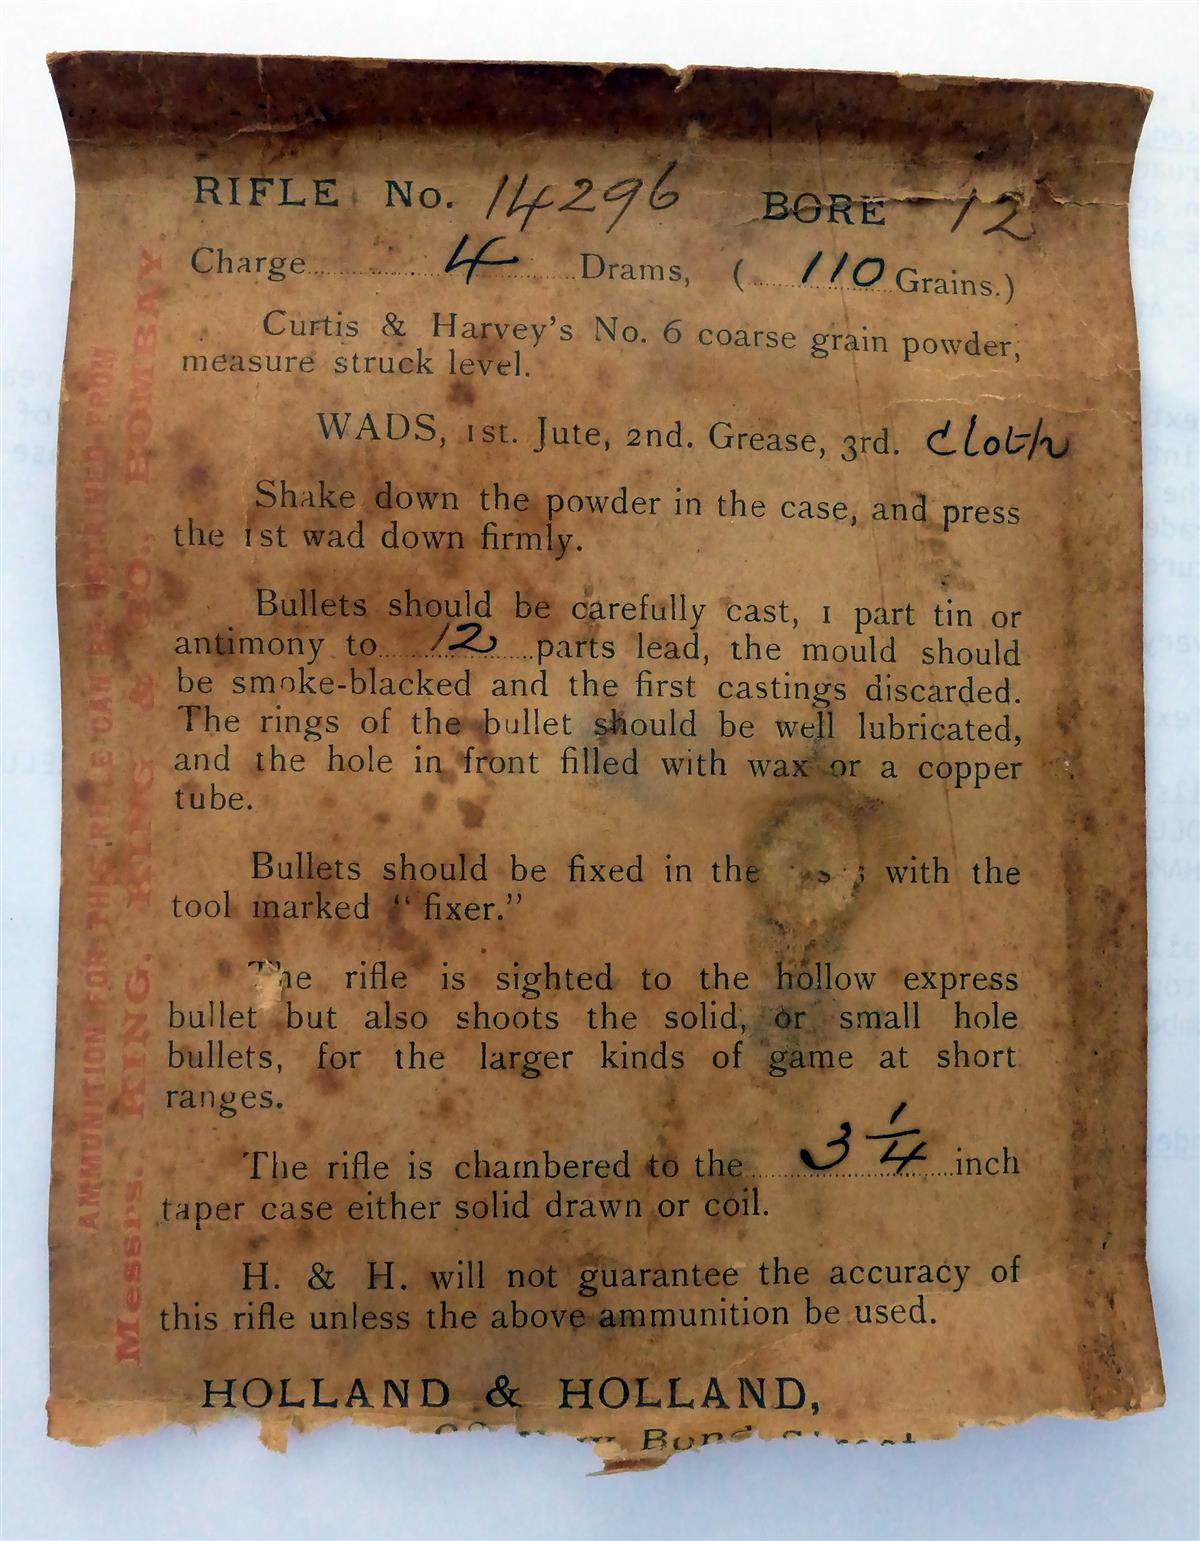 RIFLE No. 14296 BORE 12
Charge 4 Drams, ( 110 Grains.)
Curtis & Harvey's No. 6 coarse grain powder,
measure struck level.
WADS, 1st. Jute, 2nd. Grease, 3rd. Cloth
Shake down the powder in the case, and press
the 1st wad down firmly.
Bullets should be carefully cast, 1 part tin or
antimony to 12 parts lead, the mould should
be smoke-blacked and the first castings discarded.
The rings of the bullet should be well lubricated,
and the hole in front filled with wax or a copper
tube.
Bullets should be fixed in the with the
tool marked "fixer."
The rifle is sighted to the hollow express
bullet but also shoots the solid, or small hole
bullets, for the larger kinds of game at short
ranges.
The rifle is chambered to the 3 1/4 inch
taper case either solid drawn or coil.
H. & H. will not guarantee the accuracy of
this rifle unless the above ammunition be used.
HOLLAND & HOLLAND,
Bond Street
AMMUNITION FOR THIS RIFLE CAN BE OBTAINED FROM
Messrs. KING, KING & CO., BOMBAY